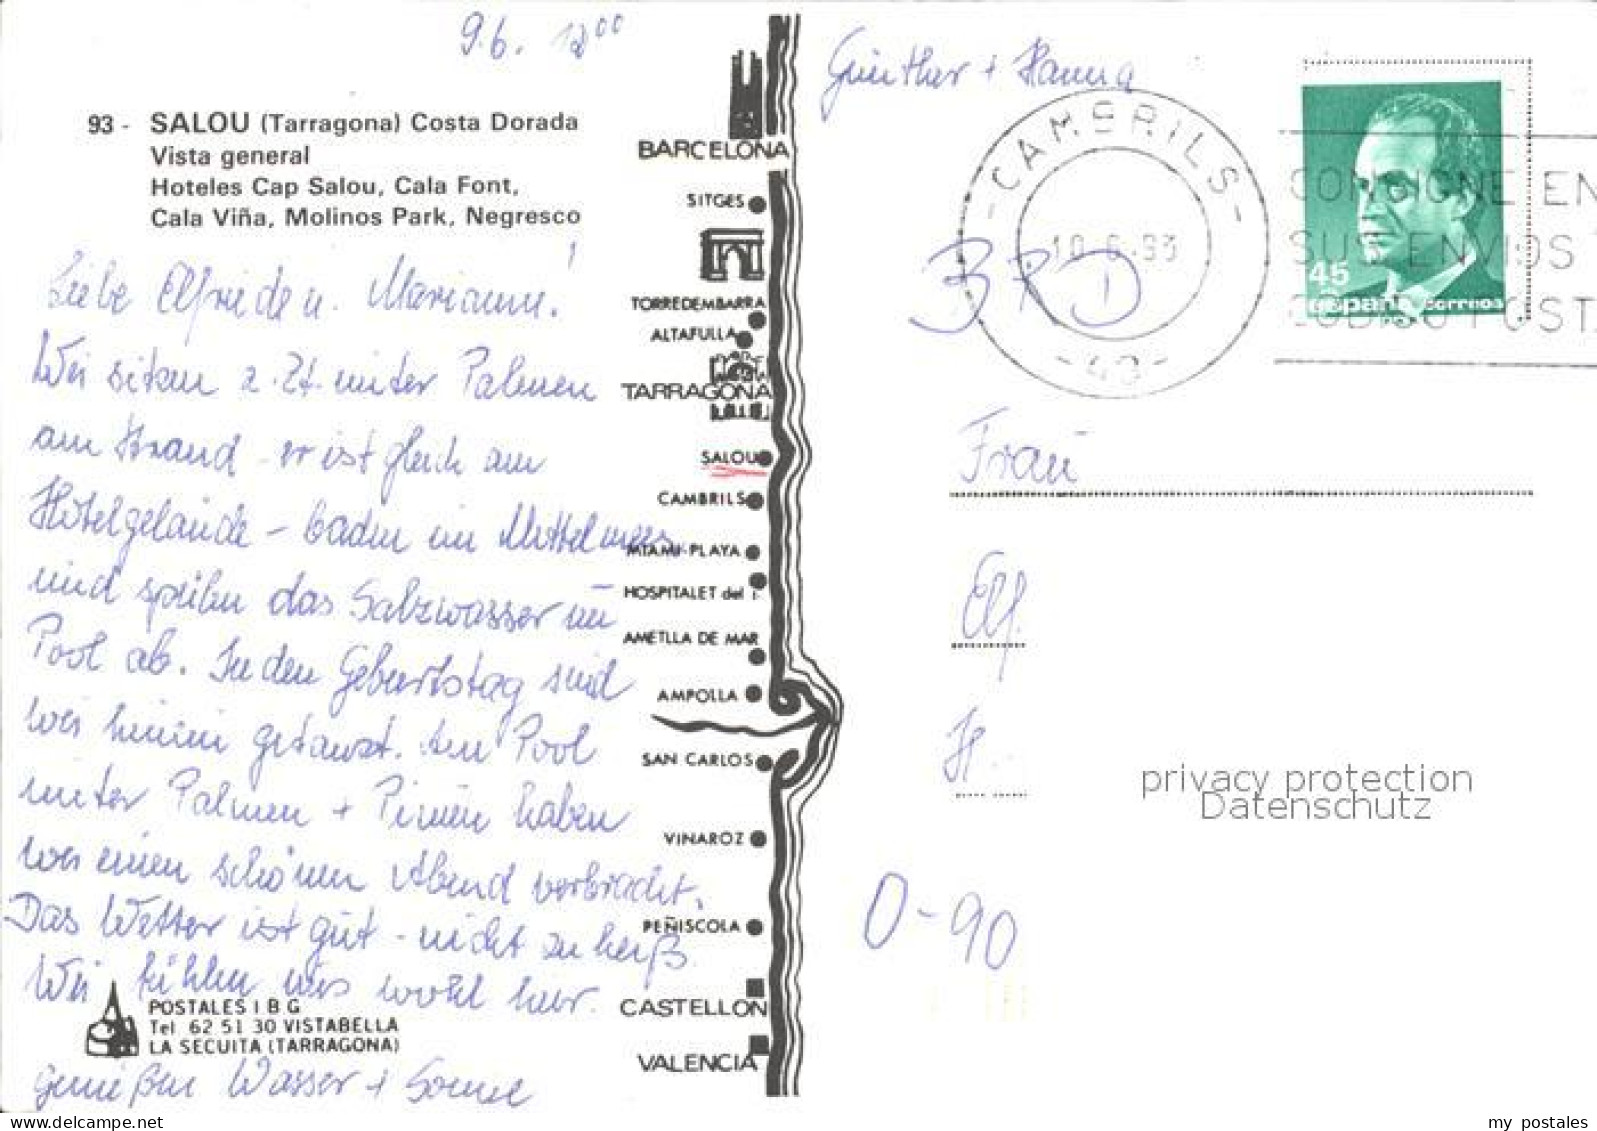 9.6. 18⁰⁰
93 - SALOU (Tarragona) Costa Dorada
Vista general
Hoteles Cap Salou, Cala Font,
Cala Viña, Molinos Park, Negresco
Liebe Elfriede u. Marianne!
Wir sitzen z. Zt. unter Palmen
am Strand - er ist gleich am
Hotelgelände - baden im Mittelmeer
und spülen das Salzwasser im
Pool ab. In den Geburtstag sind
wir hinein getanzt. Am Pool
unter Palmen + Pinien haben
wir einen schönen Abend verbracht.
Das Wetter ist gut - nicht zu heiß.
Wir fühlen uns wohl hier.
genießen Wasser + Sonne
POSTALES I B G
Tel 62 51 30 VISTABELLA
LA SECUITA (TARRAGONA)
BARCELONA
SITGES
TORREDEMBARRA
ALTAFULLA
TARRAGONA
SALOU
CAMBRILS
MIAMI-PLAYA
HOSPITALET del I.
AMETLLA DE MAR
AMPOLLA
SAN CARLOS
VINAROZ
PEÑISCOLA
CASTELLON
VALENCIA
Günther + Hanna
- CAMBRILS -
10 6 93
- 43 -
CONSIGNE EN
SUS ENVIOS
CODIGO POSTA
45
españa correos
BRD
Frau
Elf.
H..
O-90
privacy protection
Datenschutz
my postales